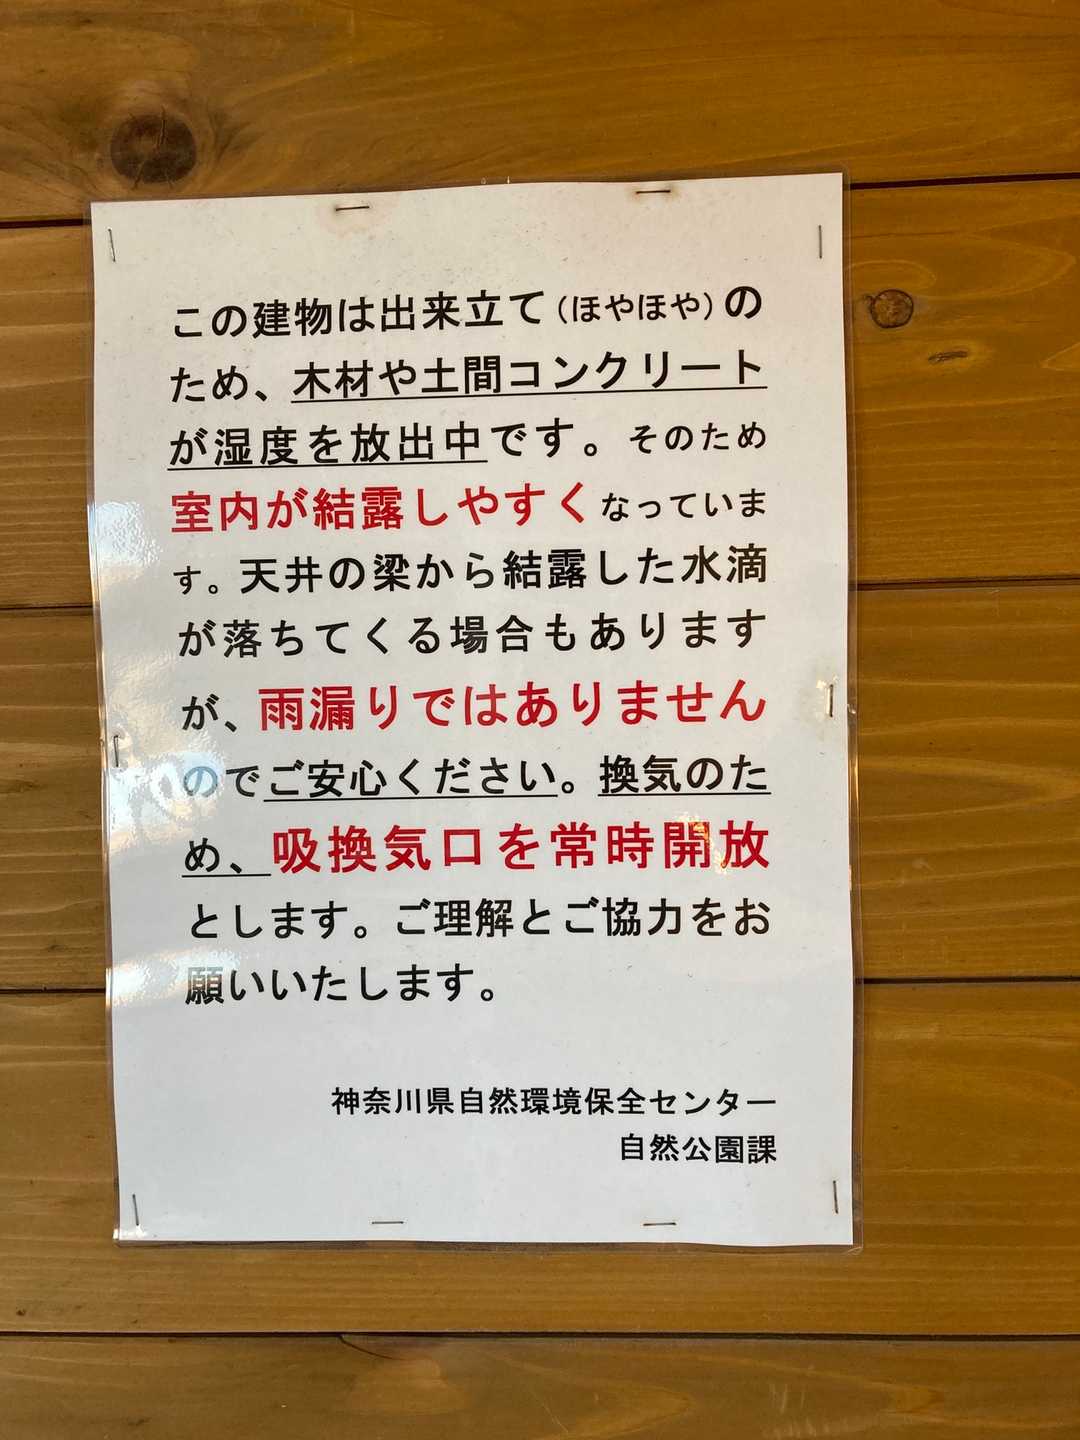 この建物は出来立て（ほやほや）の
ため、木材や土間コンクリート
が湿度を放出中です。そのため
室内が結露しやすくなっていま
す。天井の梁から結露した水滴
が落ちてくる場合もあります
が、雨漏りではありません
のでご安心ください。換気のた
め、吸換気口を常時開放
とします。ご理解とご協力をお
願いいたします。
神奈川県自然環境保全センター
自然公園課